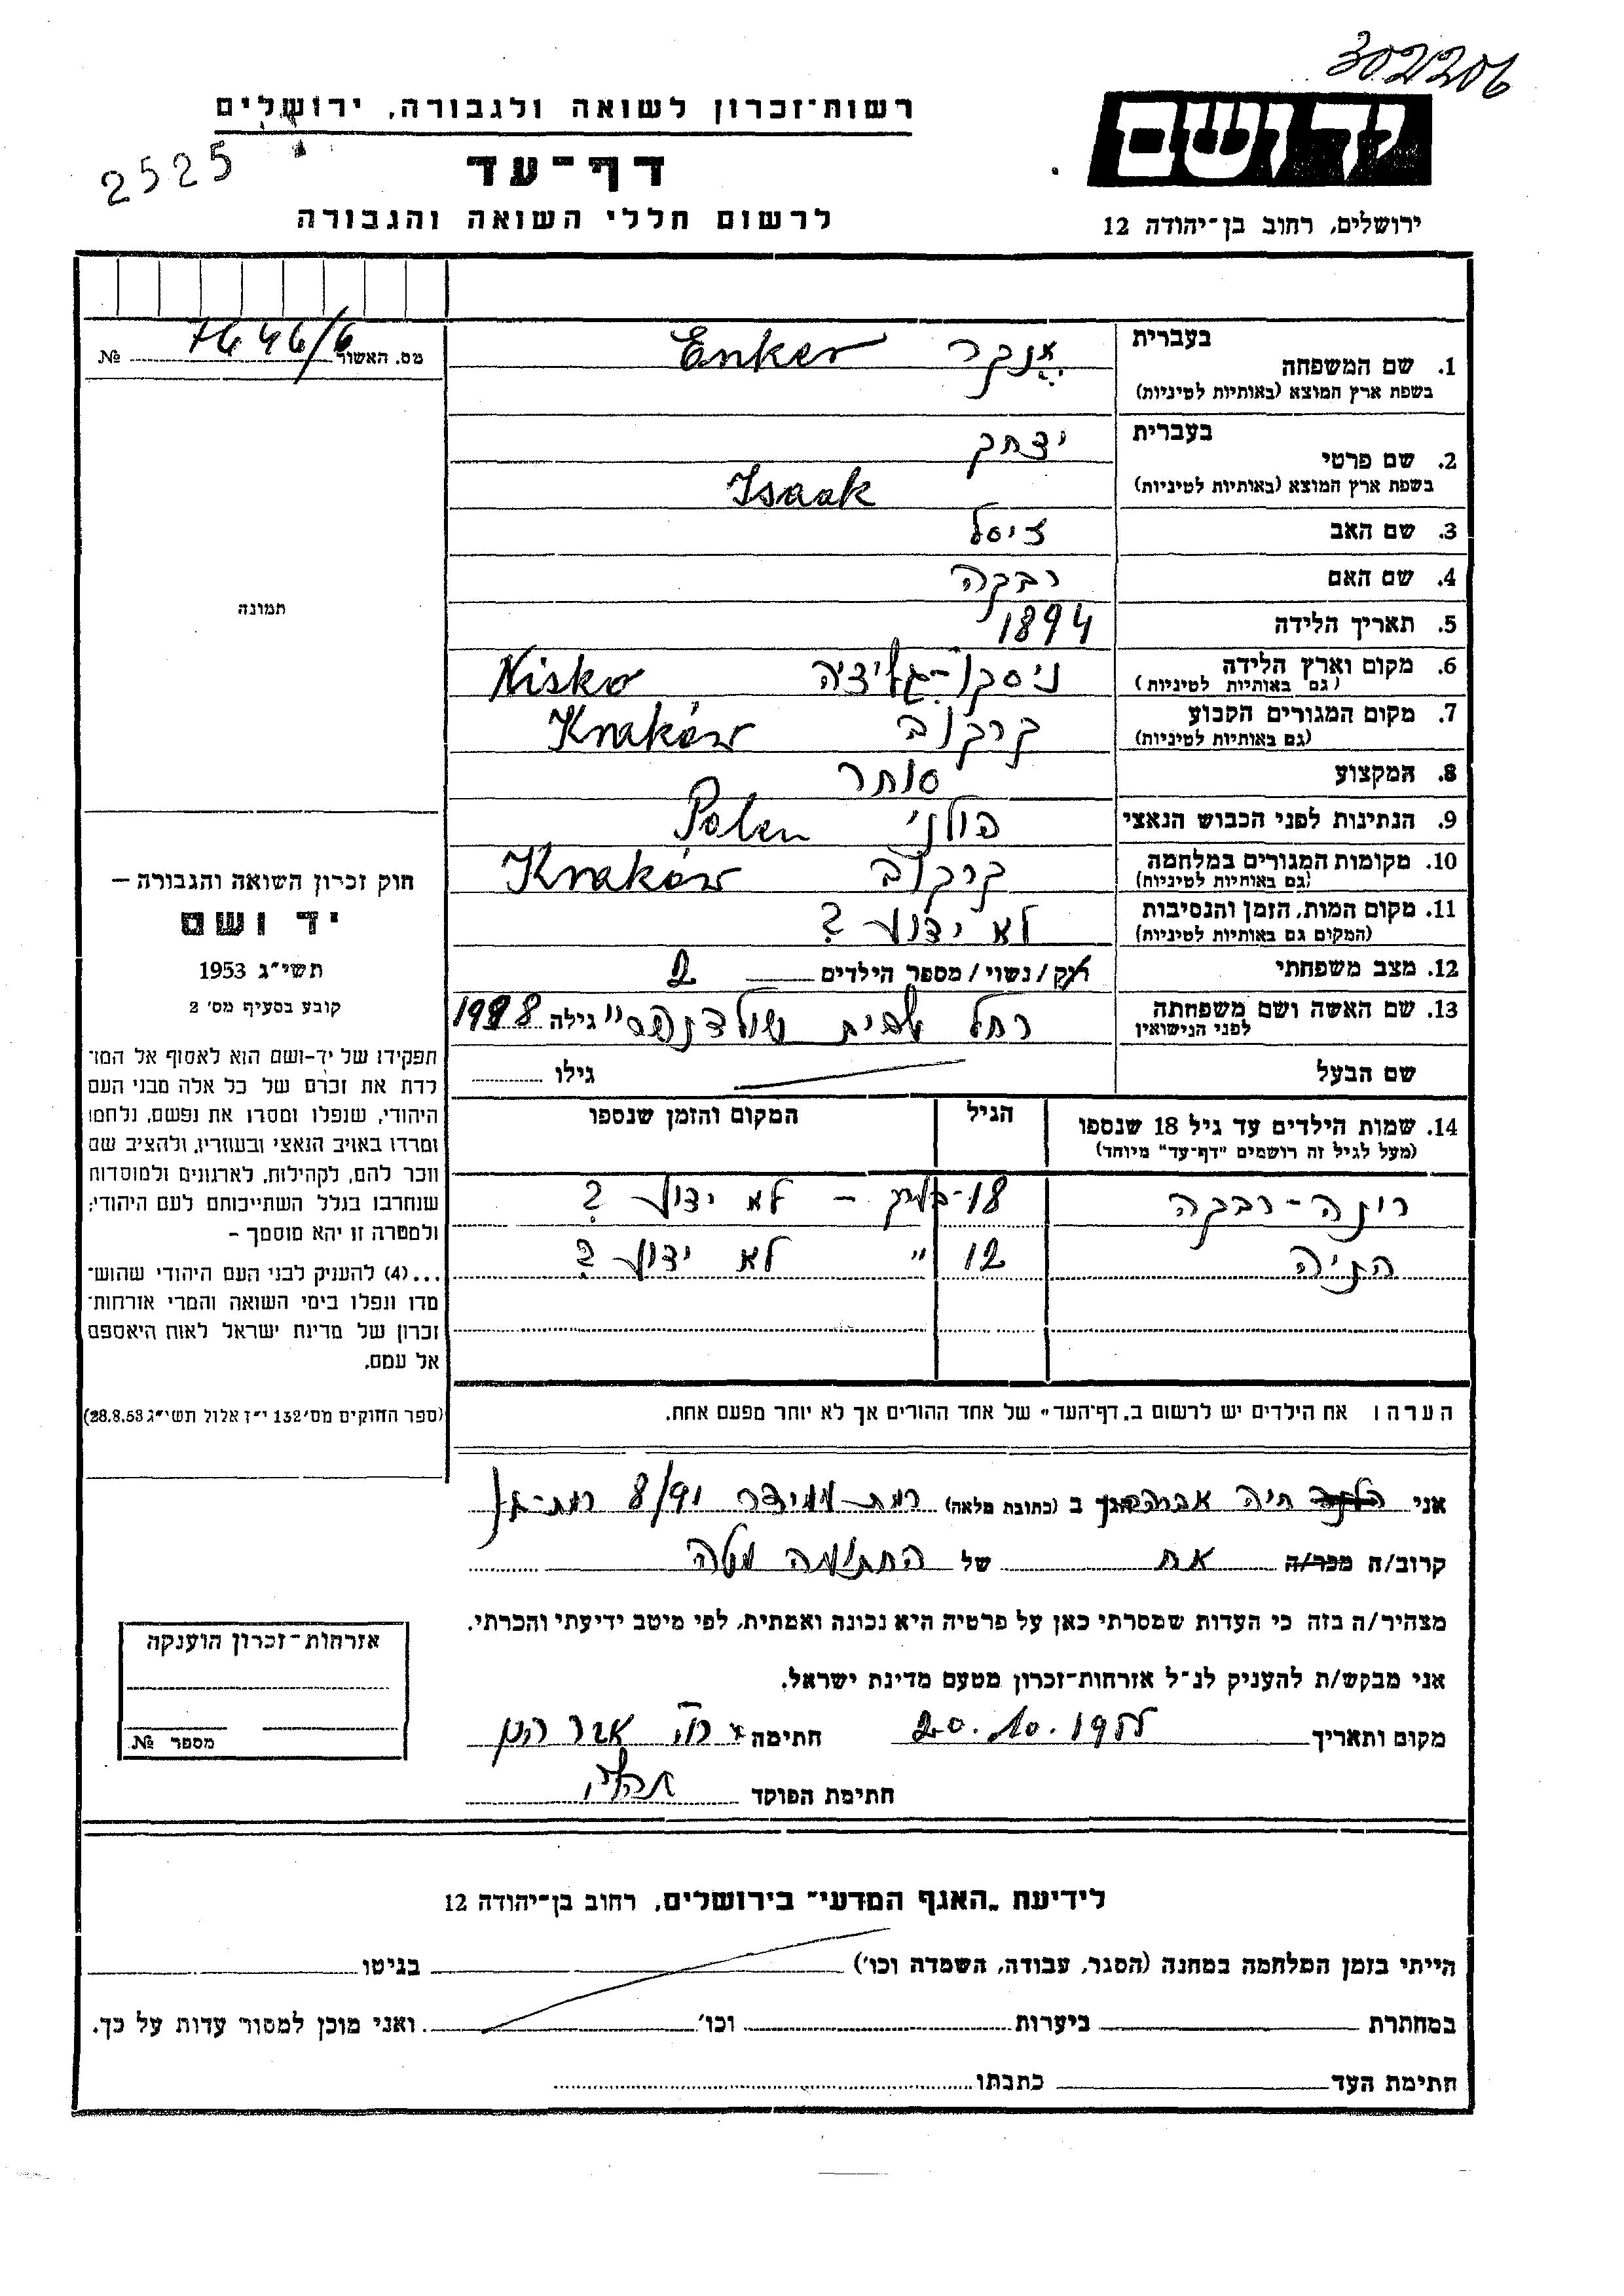 302206
יד ושם
ירושלים, רחוב בן־יהודה 12
רשות־זכרון לשואה ולגבורה, ירושלים
2525
דף־עד
לרשום חללי השואה והגבורה
מס. האשור №
1. שם המשפחה בעברית אנקר Enker
בשפת ארץ המוצא (באותיות לטיניות)
2. שם פרטי בעברית יצחק
בשפת ארץ המוצא (באותיות לטיניות) Isaak
3. שם האב זיסל
4. שם האם רבקה
5. תאריך הלידה 1894
6. מקום וארץ הלידה ניסקו־גליציה Nisko
(גם באותיות לטיניות)
7. מקום המגורים הקבוע קרקוב Kraków
(גם באותיות לטיניות)
8. המקצוע סוחר
9. הנתינות לפני הכבוש הנאצי פולני Polen
10. מקומות המגורים במלחמה קרקוב Kraków
(גם באותיות לטיניות)
11. מקום המות, הזמן והנסיבות לא ידוע ?
(המקום גם באותיות לטיניות)
12. מצב משפחתי רוק/נשוי/מספר הילדים 2
13. שם האשה ושם משפחתה רחל לבית גילה
לפני הנישואין
שם הבעל גילו
14. שמות הילדים עד גיל 18 שנספו הגיל המקום והזמן שנספו
(מעל לגיל זה רושמים "דף־עד" מיוחד)
רינה־רבקה 18 – לא ידוע ?
12 " לא ידוע ?
הערה: את הילדים יש לרשום ב„דף־העד" של אחד ההורים אך לא יותר מפעם אחת.
תמונה
חוק זכרון השואה והגבורה –
יד ושם
תשי"ג 1953
קובע בסעיף מס' 2
תפקידו של יד-ושם הוא לאסוף אל המו־
לדת את זכרם של כל אלה מבני העם
היהודי, שנפלו ומסרו את נפשם, נלחמו
ומרדו באויב הנאצי ובעוזריו, ולהציב שם
וזכר להם, לקהילות, לארגונים ולמוסדות
שנחרבו בגלל השתייכותם לעם היהודי;
ולמטרה זו יהא מוסמך –
...(4) להעניק לבני העם היהודי שהוש־
מדו ונפלו בימי השואה והמרי אזרחות־
זכרון של מדינת ישראל לאות היאספם
אל עמם.
(ספר החוקים מס' 132 י"ז אלול תשי"ג 28.8.53)
אני חיה הגר ב (כתובת מלאה) רמת עמידר 8/91 רמת־גן
קרוב/ה מכר/ה אח של החתומה מטה
מצהיר/ה בזה כי העדות שמסרתי כאן על פרטיה היא נכונה ואמתית, לפי מיטב ידיעתי והכרתי.
אני מבקש/ת להעניק לנ"ל אזרחות־זכרון מטעם מדינת ישראל.
מקום ותאריך 20.10.1955 חתימה
חתימת הפוקד
אזרחות־זכרון הוענקה
מספר №
לידיעת „האגף המדעי" בירושלים, רחוב בן־יהודה 12
הייתי בזמן המלחמה במחנה (הסגר, עבודה, השמדה וכו') בגיטו
במחתרת ביערות וכו' ואני מוכן למסור עדות על כך.
חתימת העד כתבתו